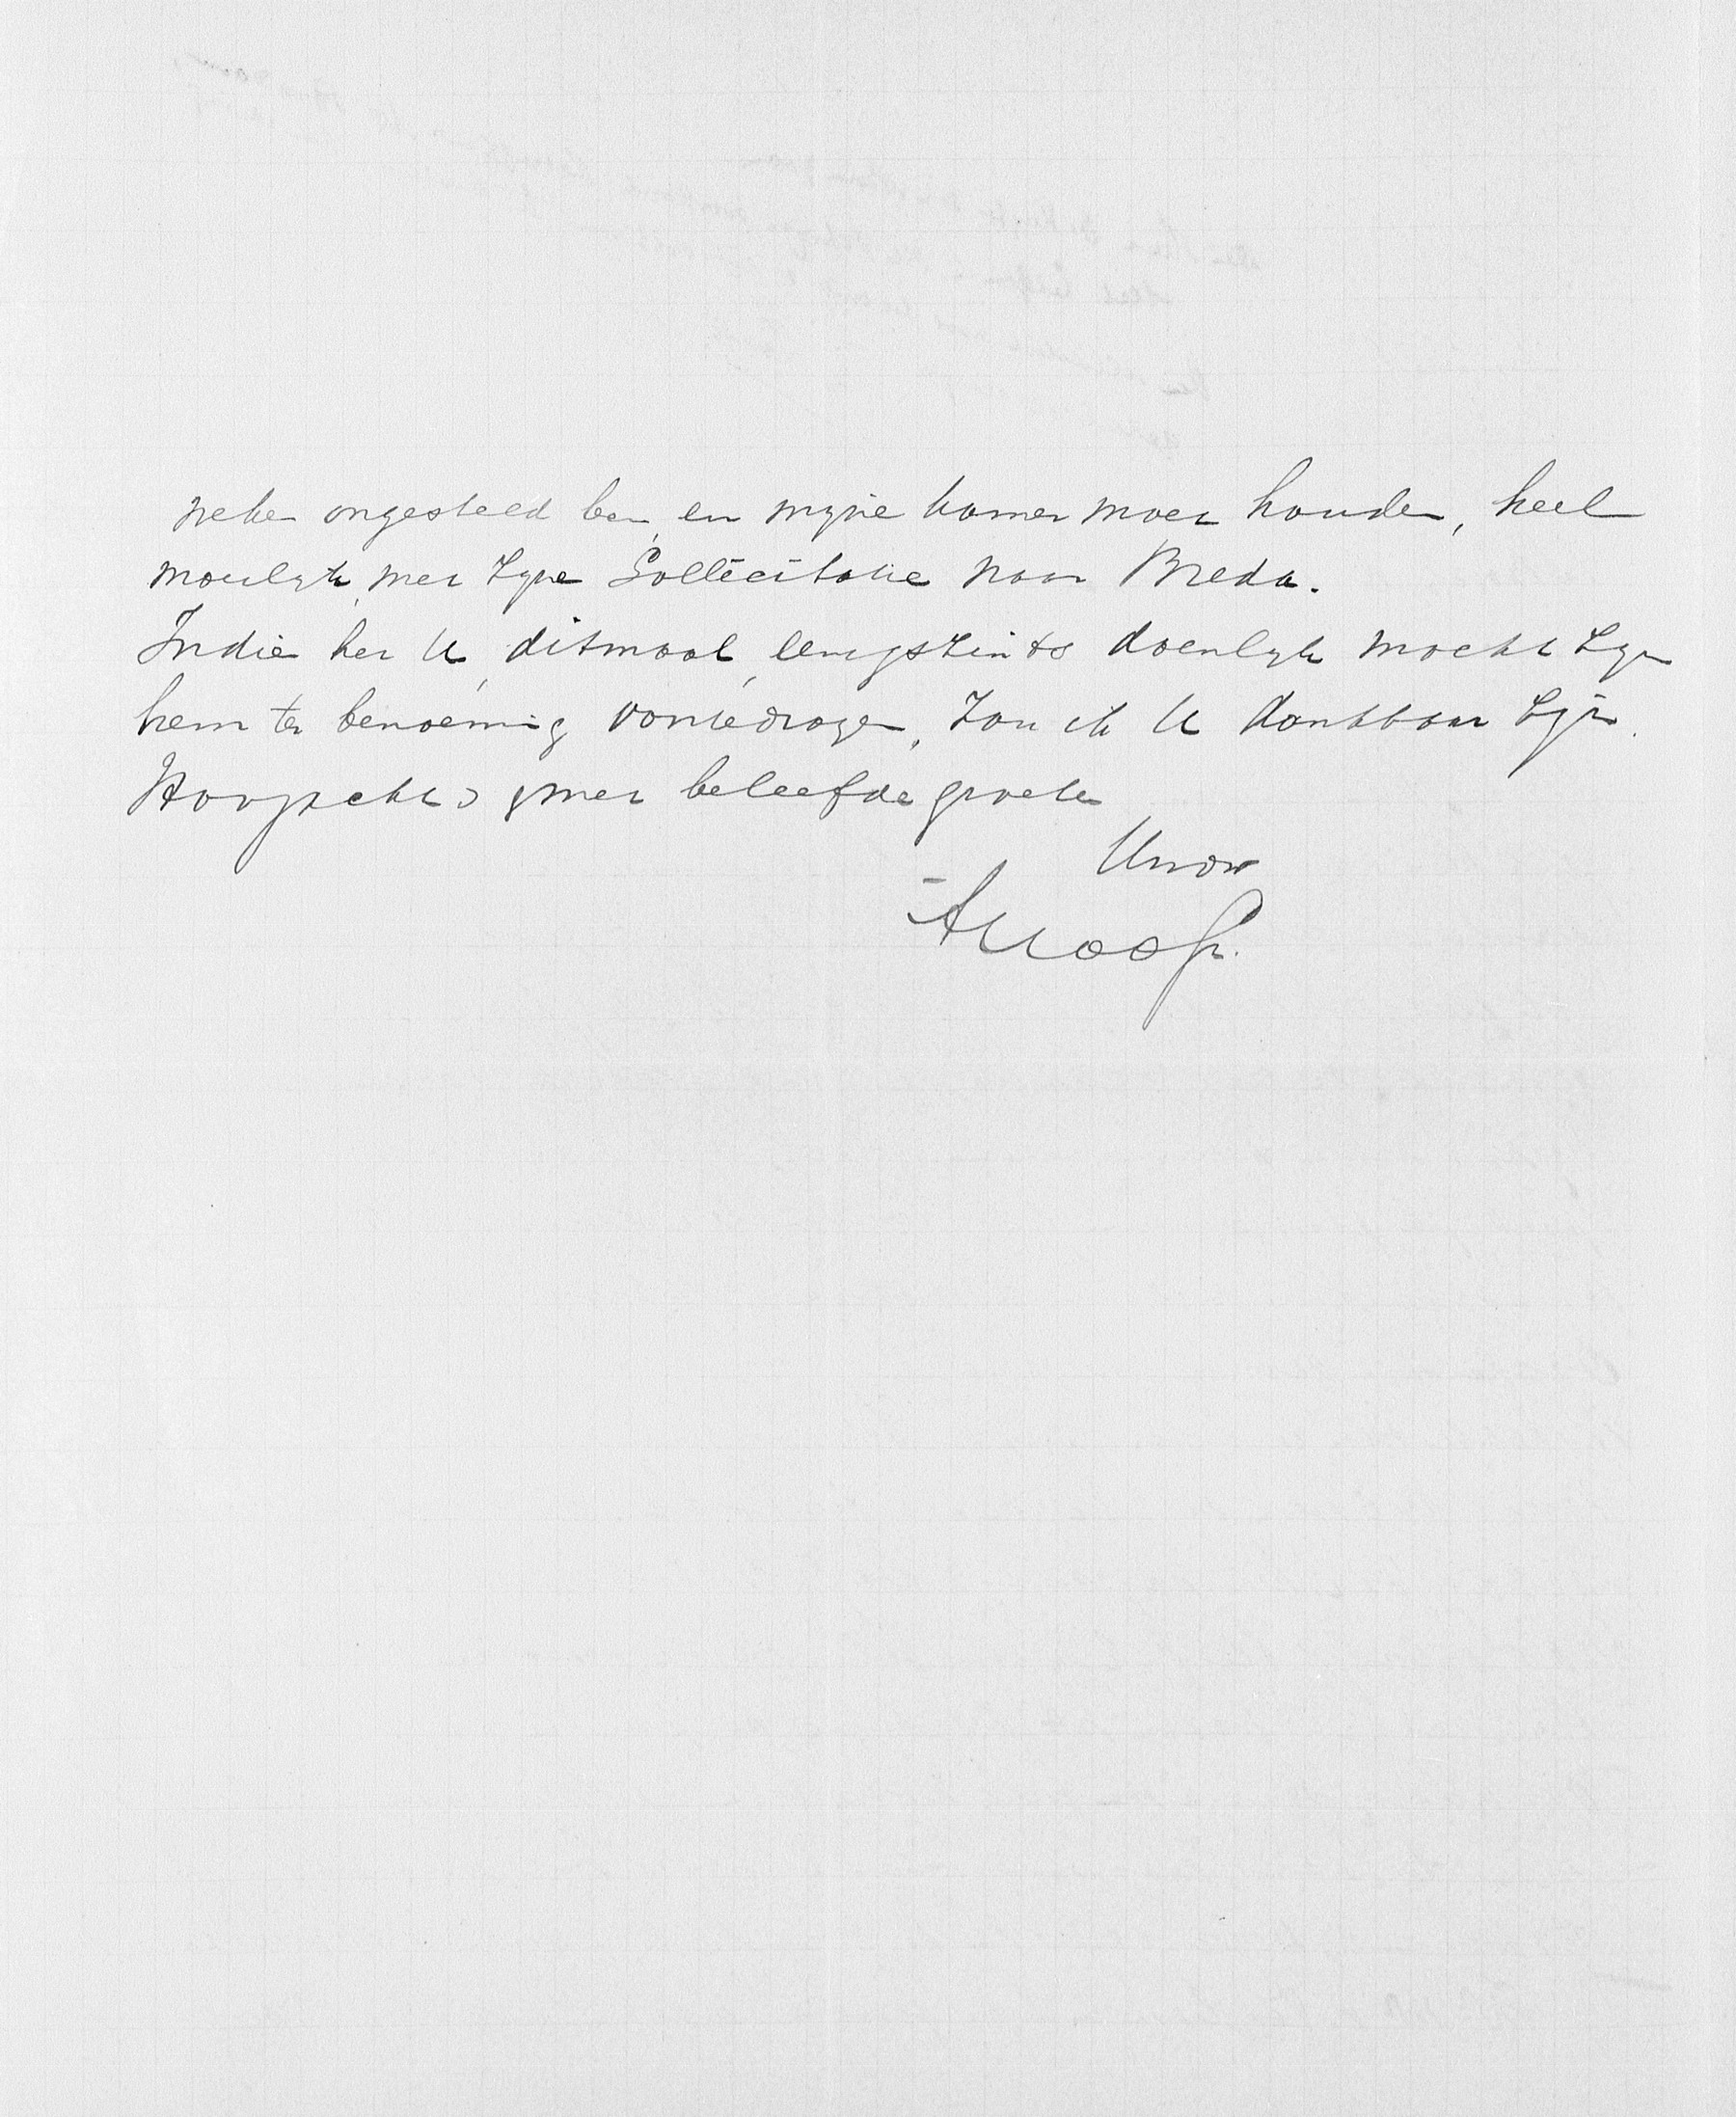 weken ongesteld ben, en mijne kamer moet houden, heel
moeilijk, met zijne Sollicitatie naar Breda.
Indien het U, ditmaal, eenigszints doenlijk mocht zijn
hem ter benoeming voortedragen, zou ik U dankbaar zijn.
Hoogacht & met beleefde groeten
Uwdw